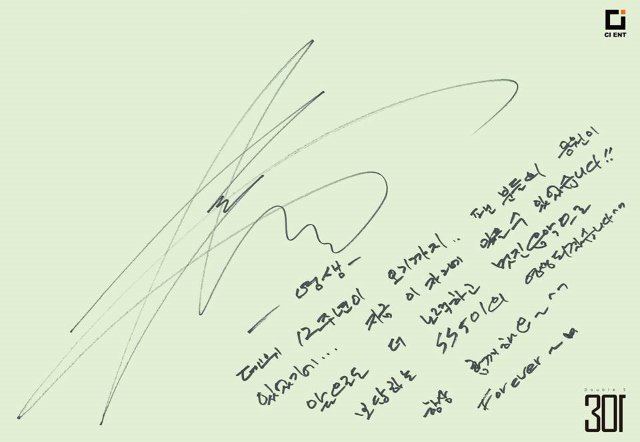 CI ENT
- 영생 -
데뷔 12주년이 오기까지.. 팬 분들의 응원이
있었기에... 지금 이 자리에 있을 수 있었습니다!!
앞으로도 더 노력하고 멋진 음악으로
보답하는 SS501의 영생 되겠습니다^^
항상 함께해요~^^
Forever~♥
Double S
301